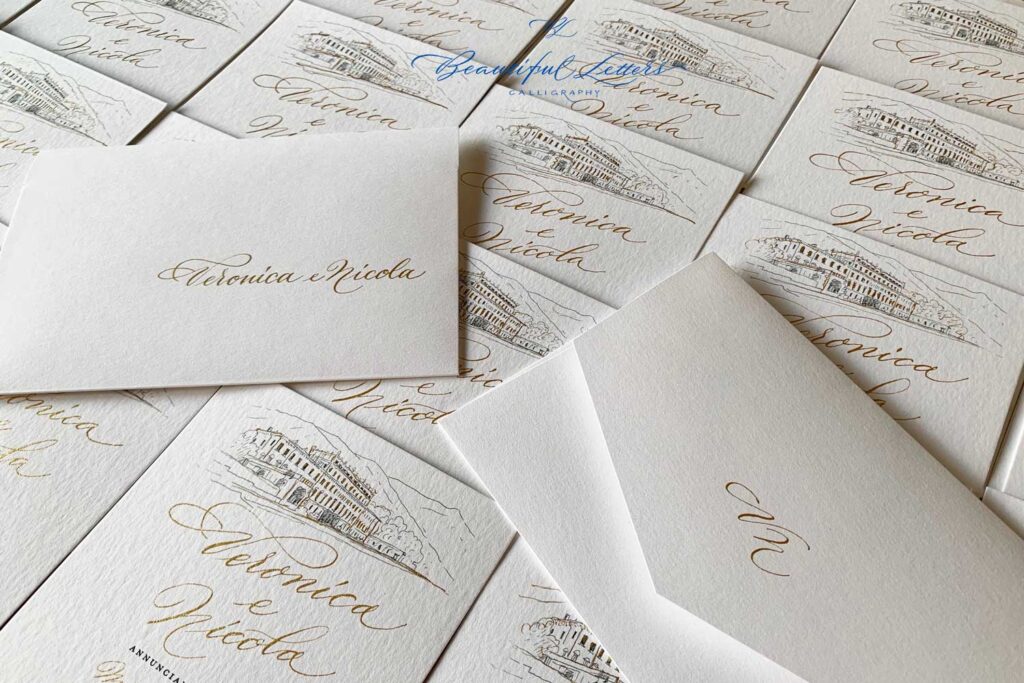 Veronica
e
Nicola
Beautiful Letters
CALLIGRAPHY
Veronica
e
Veronica
e
Nicola
Veronica
e
Nicola
Veronica
e
Nicola
Veronica
e
Nicola
Veronica
Nicola
Veronica e Nicola
Nicola
Veronica
e
Nicola
ANNUNCIA
VN